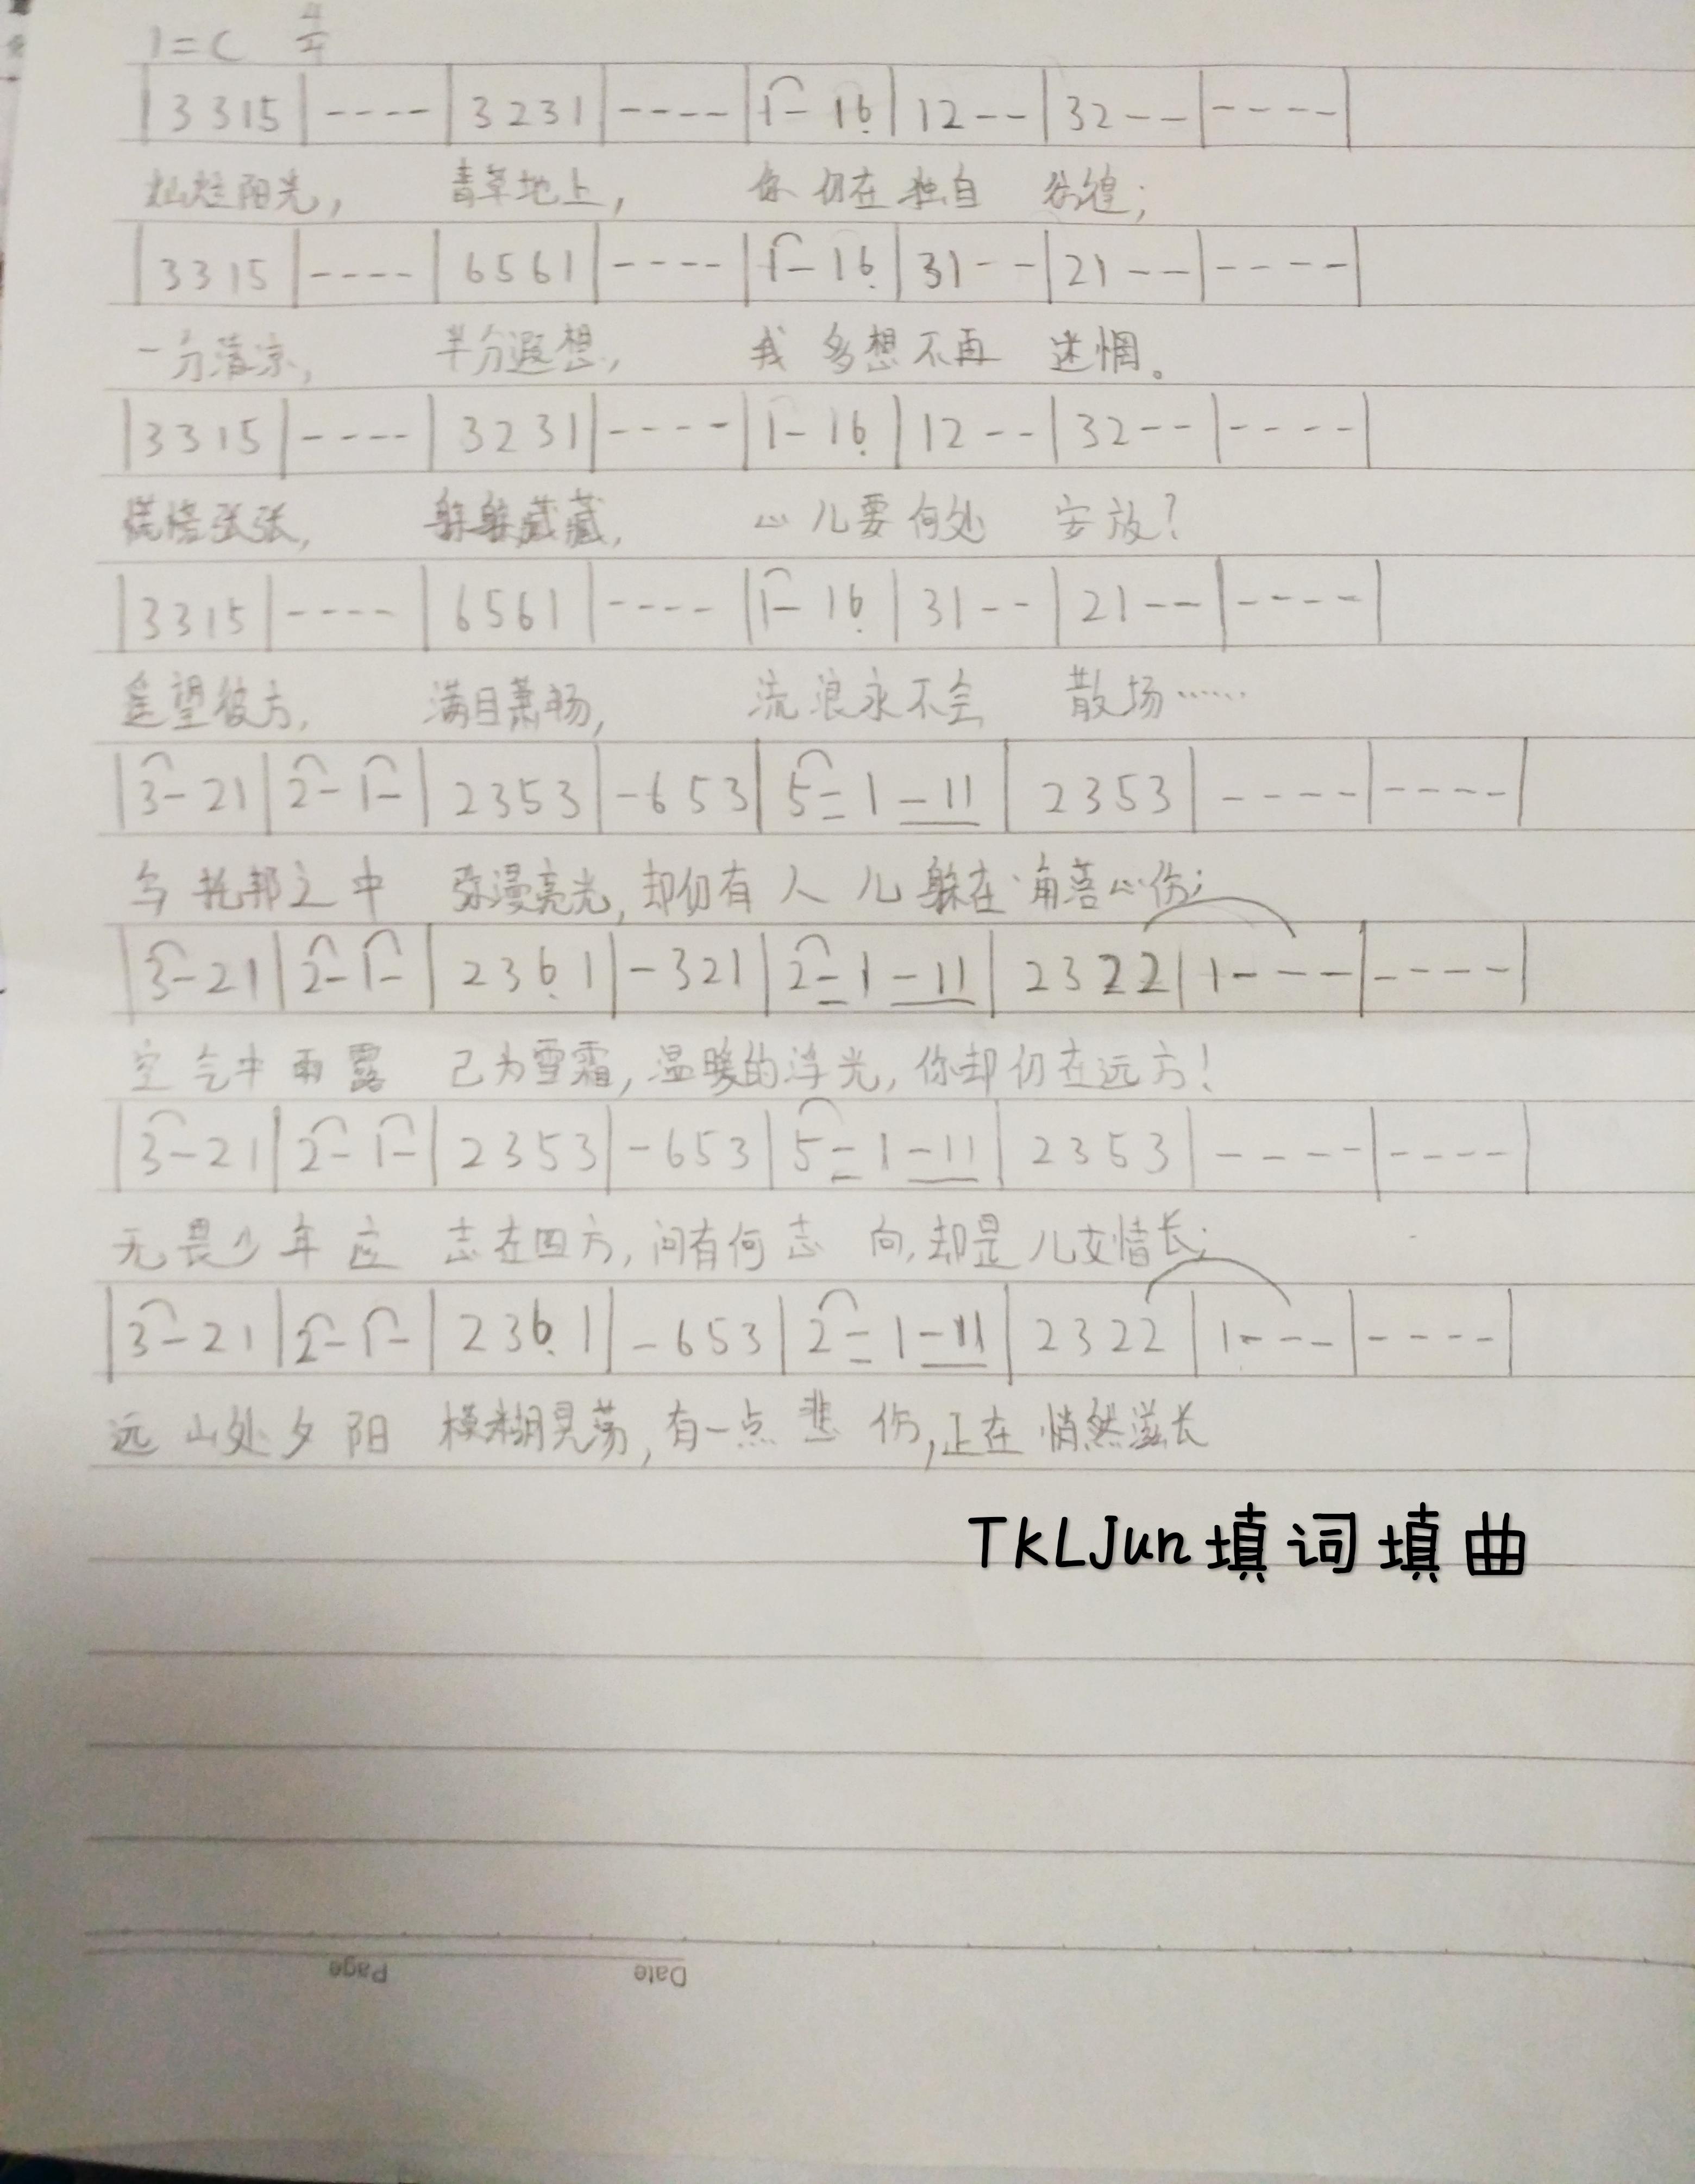 1=C 4/4
|3315|----|3231|----|1-16̣|12--|32--|----|
灿烂阳光, 青草地上, 你仍在独自 彷徨;
|3315|----|6561|----|1-16̣|31--|21--|----|
一分清凉, 半分遐想, 我多想不再 迷惘。
|3315|----|3231|----|1-16̣|12--|32--|----|
慌慌张张, 躲躲藏藏, 心儿要何处 安放?
|3315|----|6561|----|1-16̣|31--|21--|----|
遥望彼方, 满目萧杨, 流浪永不会 散场……
|3-21|2-1-|2353|-653|5-1-11|2353|----|----|
乌托邦之中 弥漫亮光,却仍有人儿躲在角落心伤;
|3-21|2-1-|236̣1|-321|2-1-11|2322|1---|----|
空气中雨露 已为雪霜,温暖的浮光,你却仍在远方!
|3-21|2-1-|2353|-653|5-1-11|2353|----|----|
无畏少年应 志在四方,问有何志向,却是儿女情长;
|3-21|2-1-|236̣1|-653|2-1-11|2322|1---|----|
远山处夕阳 模糊晃荡,有一点悲伤,正在悄然滋长
TkLJun填词填曲
Date Page